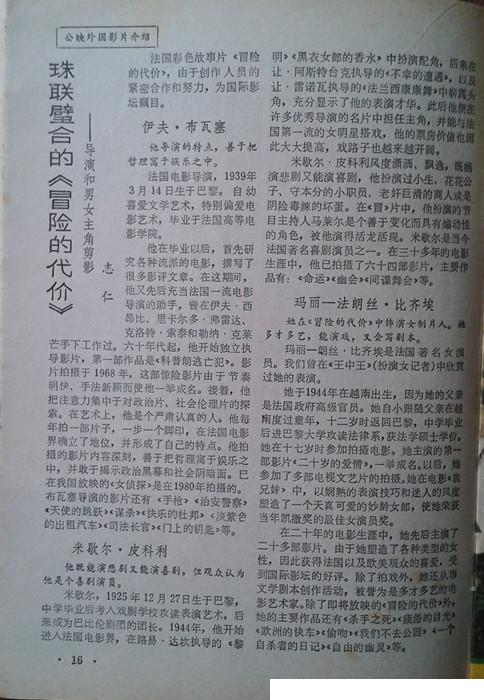 公映外国影片介绍
珠联璧合的《冒险的代价》
——导演和男女主角剪影
志仁
法国彩色故事片《冒险
的代价》，由于创作人员的
紧密合作和努力，为国际影
坛瞩目。
伊夫·布瓦塞
他导演的特点，善于把
哲理寓于娱乐之中。
法国电影导演，1939年
3月14日生于巴黎。自幼
喜爱文学艺术，特别偏爱电
影艺术，毕业于法国高等电
影学院。
他在毕业以后，首先研
究各种流派的电影，撰写了
很多影评文章。在这期间，
他又先后充当法国一流电影
导演的助手，曾在伊夫·西
昂比、里卡尔多·弗雷达、
克洛特·索泰和勒纳·克莱
芒手下工作过。六十年代起，他开始独立执
导影片，第一部作品是《科普朗逃亡犯》。影
片拍摄于1968年，这部惊险影片由于节奏
明快、手法新颖而使他一举成名。接着，他
把注意力集中于对政治片、社会伦理片的探
索。在艺术上，他是个严肃认真的人。他每
年拍一部片子，一步一个脚印，在法国电影
界确立了地位，并形成了自己的特点。他拍
摄的影片内容深刻，善于把哲理寓于娱乐之
中，并敢于揭示政治黑幕和社会阴暗面。已
在我国放映的《女侦探》是在1980年拍摄的。
布瓦塞导演的影片还有《手枪》《治安警察》
《天使的跳跃》《谋杀》《快乐的杜邦》《淡紫色
的出租汽车》《司法长官》《门上的钥匙》等。
米歇尔·皮科利
他既能演悲剧又能演喜剧，但观众认为
他是个喜剧演员。
米歇尔，1925年12月27日生于巴黎，
中学毕业后考入戏剧学校攻读表演艺术，后
来成为巴比伦剧团的团长。1944年，他开始
进入法国电影界，在路易·达坎执导的《黎
明》《黑衣女郎的香水》中扮演配角，后来在
让·阿斯特台克执导的《不幸的遭遇》，以及
让·雷诺瓦执导的《法兰西康康舞》中崭露头
角，充分显示了他的表演才华。此后他便在
许多优秀导演的名片中担任主角，并能与法
国第一流的女明星搭戏，他的票房价值也因
此大大提高，戏路子也越来越开阔。
米歇尔·皮科利风度潇洒、飘逸，既能
演悲剧又能演喜剧，他扮演过小生、花花公
子、守本分的小职员、老奸巨滑的商人或是
阴险毒辣的坏蛋。在《冒》片中，他扮演的节
目主持人马莱尔是个善于变化而具有煽动性
的角色，被他演得活龙活现。米歇尔是当今
法国著名喜剧演员之一。在三十多年的电影
生涯中，他已拍摄了六十四部影片，主要作
品有：《命运》《幽会》《间谍舞会》等。
玛丽—法朗丝·比齐埃
她在《冒险的代价》中饰演女制片人。她
多才多艺，能演戏，又会写剧本。
玛丽—朗丝·比齐埃是法国著名女演
员。我们曾在《王中王》（扮演女记者）中欣赏
过她的表演。
她于1944年在越南出生，因为她的父亲
是法国政府高级官员。她自小跟随父亲在越
南度过童年，十二岁时返回巴黎，中学毕业
后进巴黎大学攻读法律系，获法学硕士学位。
她在十七岁时参加拍摄电影。她主演的第一
部影片《二十岁的爱情》，一举成名。以后，她
参加了多部电视文艺片的拍摄。她在电影《表
兄妹》中，以娴熟的表演技巧和迷人的风度
塑造了一个天真可爱的妙龄女郎，使她荣获
当年凯撒奖的最佳女演员奖。
在二十年的电影生涯中，她先后主演了
二十多部影片。由于她塑造了各种类型的女
性，因此获得法国以及欧美观众的喜爱，受
到国际影坛的好评。除了拍戏外，她还从事
文学剧本创作活动，被誉为是多才多艺的电
影艺术家。除了即将放映的《冒险的代价》外，
她的主要作品还有《杀手之死》《疲倦的目光》
《欧洲的快车》《偷吻》《我们不去公园》《一个
自杀者的日记》《自由的幽灵》等。
·16·